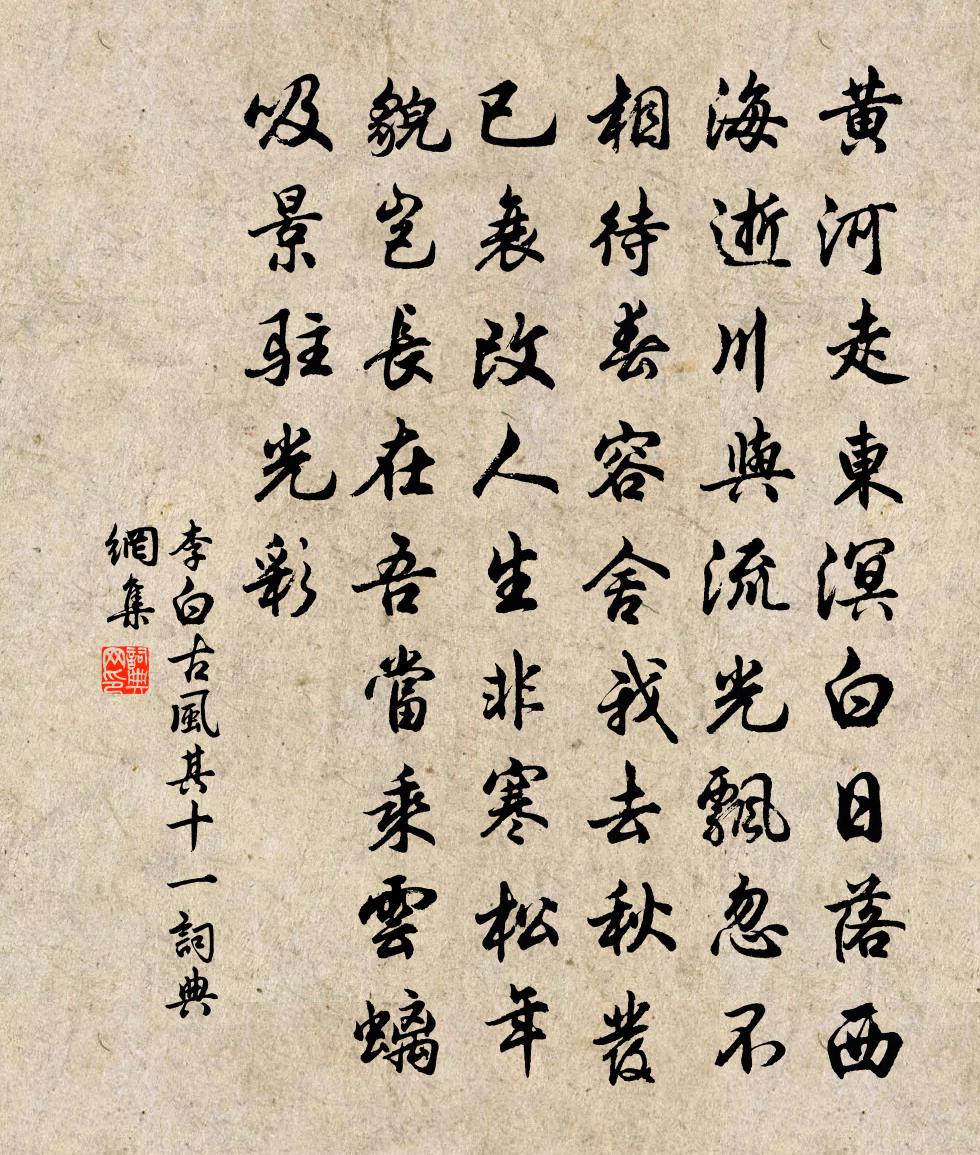 黄河走東溟白日落西
海逝川與流光飄忽不
相待春容舍我去秋髮
已衰改人生非寒松年
貌豈長在吾當乘雲螭
吸景駐光彩
李白古風其十一詞典
網集
詞典
网印